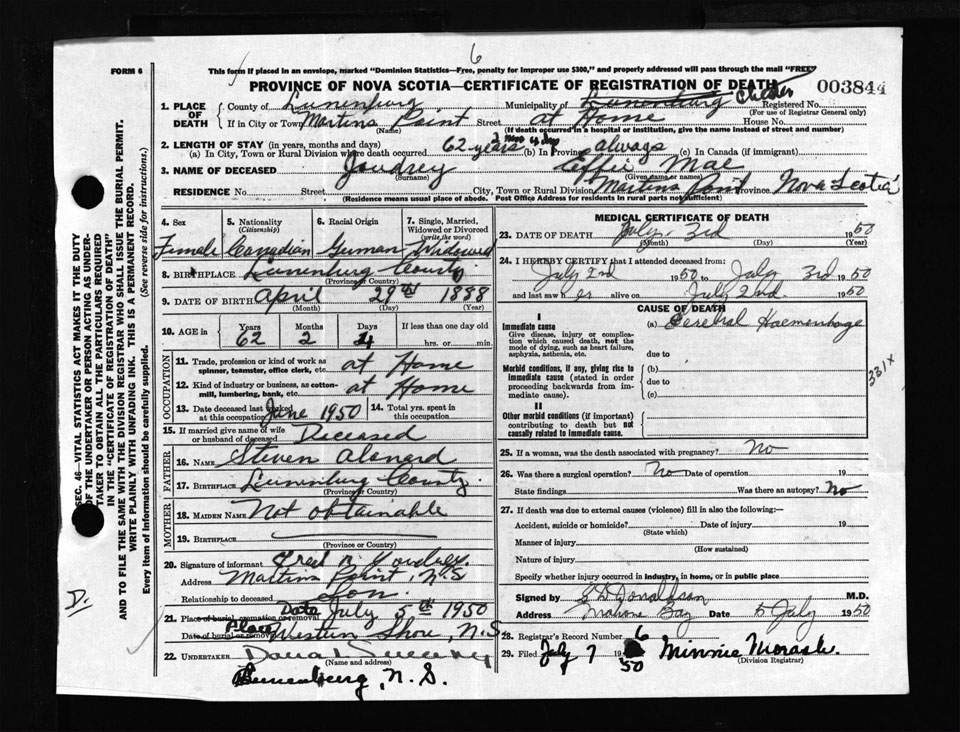 6
FORM 6
This form if placed in an envelope, marked "Dominion Statistics—Free, penalty for improper use $300," and properly addressed will pass through the mail "FREE"
PROVINCE OF NOVA SCOTIA—CERTIFICATE OF REGISTRATION OF DEATH
003844
1. PLACE OF DEATH
County of Lunenburg Municipality of Lunenburg Chester Registered No.
(For use of Registrar General only)
If in City or Town Martins Point Street at Home House No.
(Name) (If death occurred in a hospital or institution, give the name instead of street and number)
2. LENGTH OF STAY (in years, months and days)
(a) In City, Town or Rural Division where death occurred 62 years 2 mos 4 dys (b) In Province always (c) In Canada (if immigrant)
3. NAME OF DECEASED Joudrey Effie Mae
(Surname) (Given name or names)
RESIDENCE No. Street City, Town or Rural Division Martins Point Province Nova Scotia
(Residence means usual place of abode. Post Office Address for residents in rural parts not sufficient)
4. Sex 5. Nationality (Citizenship) 6. Racial Origin 7. Single, Married, Widowed or Divorced (write the word)
Female Canadian German Widowed
8. BIRTHPLACE Lunenburg County
(Province or Country)
9. DATE OF BIRTH April 29th 1888
(Month) (Day) (Year)
10. AGE in Years Months Days If less than one day old
62 2 4 hrs. or min.
OCCUPATION
11. Trade, profession or kind of work as spinner, teamster, office clerk, etc. at Home
12. Kind of industry or business, as cotton-mill, lumbering, bank, etc. at Home
13. Date deceased last worked at this occupation June 1950 14. Total yrs. spent in this occupation
15. If married give name of wife or husband of deceased Deceased
FATHER
16. NAME Steven
17. BIRTHPLACE Lunenburg County
(Province or Country)
MOTHER
18. MAIDEN NAME Not obtainable
19. BIRTHPLACE
(Province or Country)
20. Signature of informant Fred Joudrey
Address Martins Point, N.S
Relationship to deceased Son
21. Place of burial, cremation or removal Date July 5th 1950
Date of burial or removal Place Western Shore, N.S
22. UNDERTAKER
(Name and address)
Lunenburg, N.S.
MEDICAL CERTIFICATE OF DEATH
23. DATE OF DEATH July 3rd 1950
(Month) (Day) (Year)
24. I HEREBY CERTIFY that I attended deceased from:
July 2nd 1950 to July 3rd 1950
and last saw her alive on July 2nd 1950
CAUSE OF DEATH
I
Immediate cause
Give disease, injury or complication which caused death, not the mode of dying, such as heart failure, asphyxia, asthenia, etc.
(a) Cerebral Haemorrhage
due to
Morbid conditions, if any, giving rise to immediate cause (stated in order proceeding backwards from immediate cause).
(b)
due to
(c)
331x
II
Other morbid conditions (if important) contributing to death but not causally related to immediate cause.
25. If a woman, was the death associated with pregnancy? No
26. Was there a surgical operation? No Date of operation 19
State findings Was there an autopsy? No
27. If death was due to external causes (violence) fill in also the following:—
Accident, suicide or homicide? Date of injury 19
(State which)
Manner of injury
(How sustained)
Nature of injury
Specify whether injury occurred in industry, in home, or in public place
Signed by Donaldson M.D.
Address Mahone Bay Date 5 July 1950
28. Registrar's Record Number 6
29. Filed July 7 1950 Minnie Morash
(Division Registrar)
SEC. 46—VITAL STATISTICS ACT MAKES IT THE DUTY OF THE UNDERTAKER OR PERSON ACTING AS UNDERTAKER TO OBTAIN ALL THE PARTICULARS REQUIRED IN THE "CERTIFICATE OF REGISTRATION OF DEATH" AND TO FILE THE SAME WITH THE DIVISION REGISTRAR WHO SHALL ISSUE THE BURIAL PERMIT.
WRITE PLAINLY WITH UNFADING INK. THIS IS A PERMANENT RECORD.
Every item of information should be carefully supplied. (See reverse side for instructions.)
D.